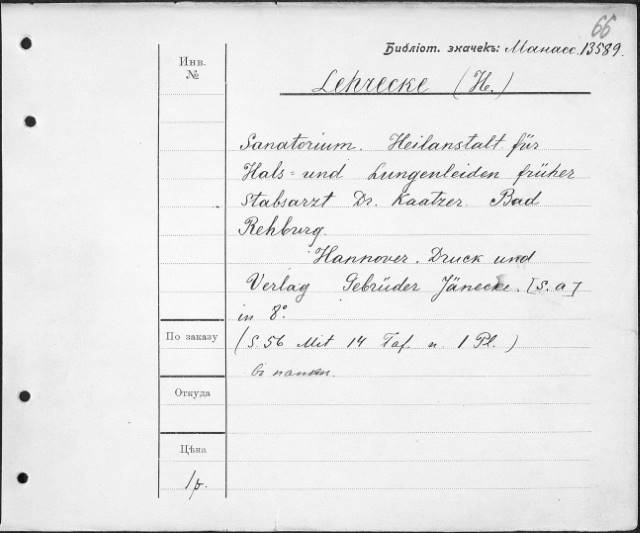 66
Библіот. значекъ: Манасс. 13589.
Инв.
№
Lehrecke (H.)
Sanatorium. Heilanstalt für
Hals= und Lungenleiden früher
Stabsarzt Dr. Kaatzer. Bad
Rehburg.
Hannover. Druck und
Verlag Gebrüder Jänecke. [S. a]
in 8°.
По заказу
(S. 56 Mit 14 Taf. u. 1 Pl.)
въ папкѣ.
Откуда
Цѣна
1 р.